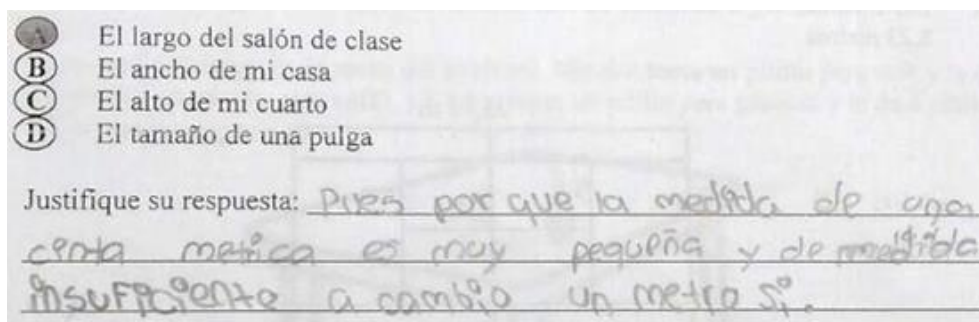 A El largo del salón de clase
B El ancho de mi casa
C El alto de mi cuarto
D El tamaño de una pulga
Justifique su respuesta: Pues por que la medida de una
cinta metrica es muy pequeña y de medida
insuficiente a cambio un metro si.